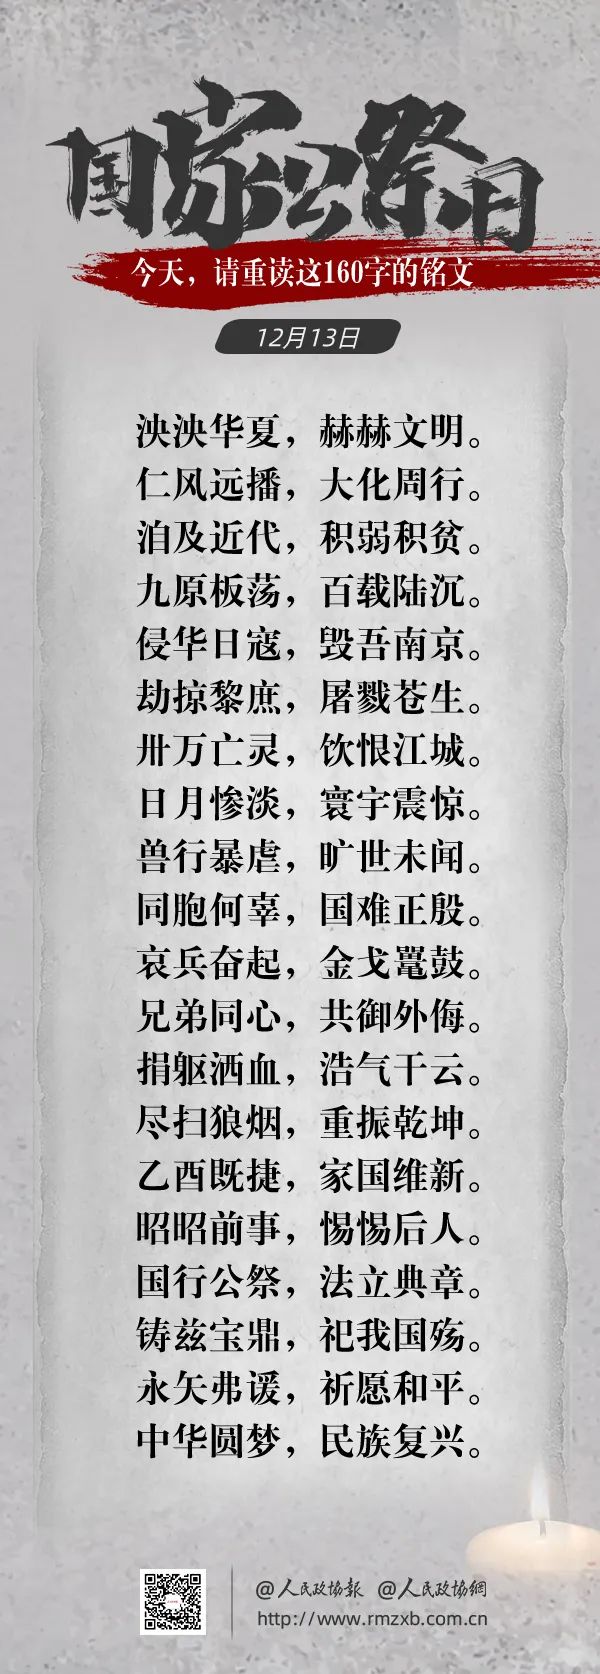 国家公祭日
今天，请重读这160字的铭文
12月13日
泱泱华夏，赫赫文明。
仁风远播，大化周行。
洎及近代，积弱积贫。
九原板荡，百载陆沉。
侵华日寇，毁吾南京。
劫掠黎庶，屠戮苍生。
卅万亡灵，饮恨江城。
日月惨淡，寰宇震惊。
兽行暴虐，旷世未闻。
同胞何辜，国难正殷。
哀兵奋起，金戈鼍鼓。
兄弟同心，共御外侮。
捐躯洒血，浩气干云。
尽扫狼烟，重振乾坤。
乙酉既捷，家国维新。
昭昭前事，惕惕后人。
国行公祭，法立典章。
铸兹宝鼎，祀我国殇。
永矢弗谖，祈愿和平。
中华圆梦，民族复兴。
@人民政协報 @人民政协網
http://www.rmzxb.com.cn